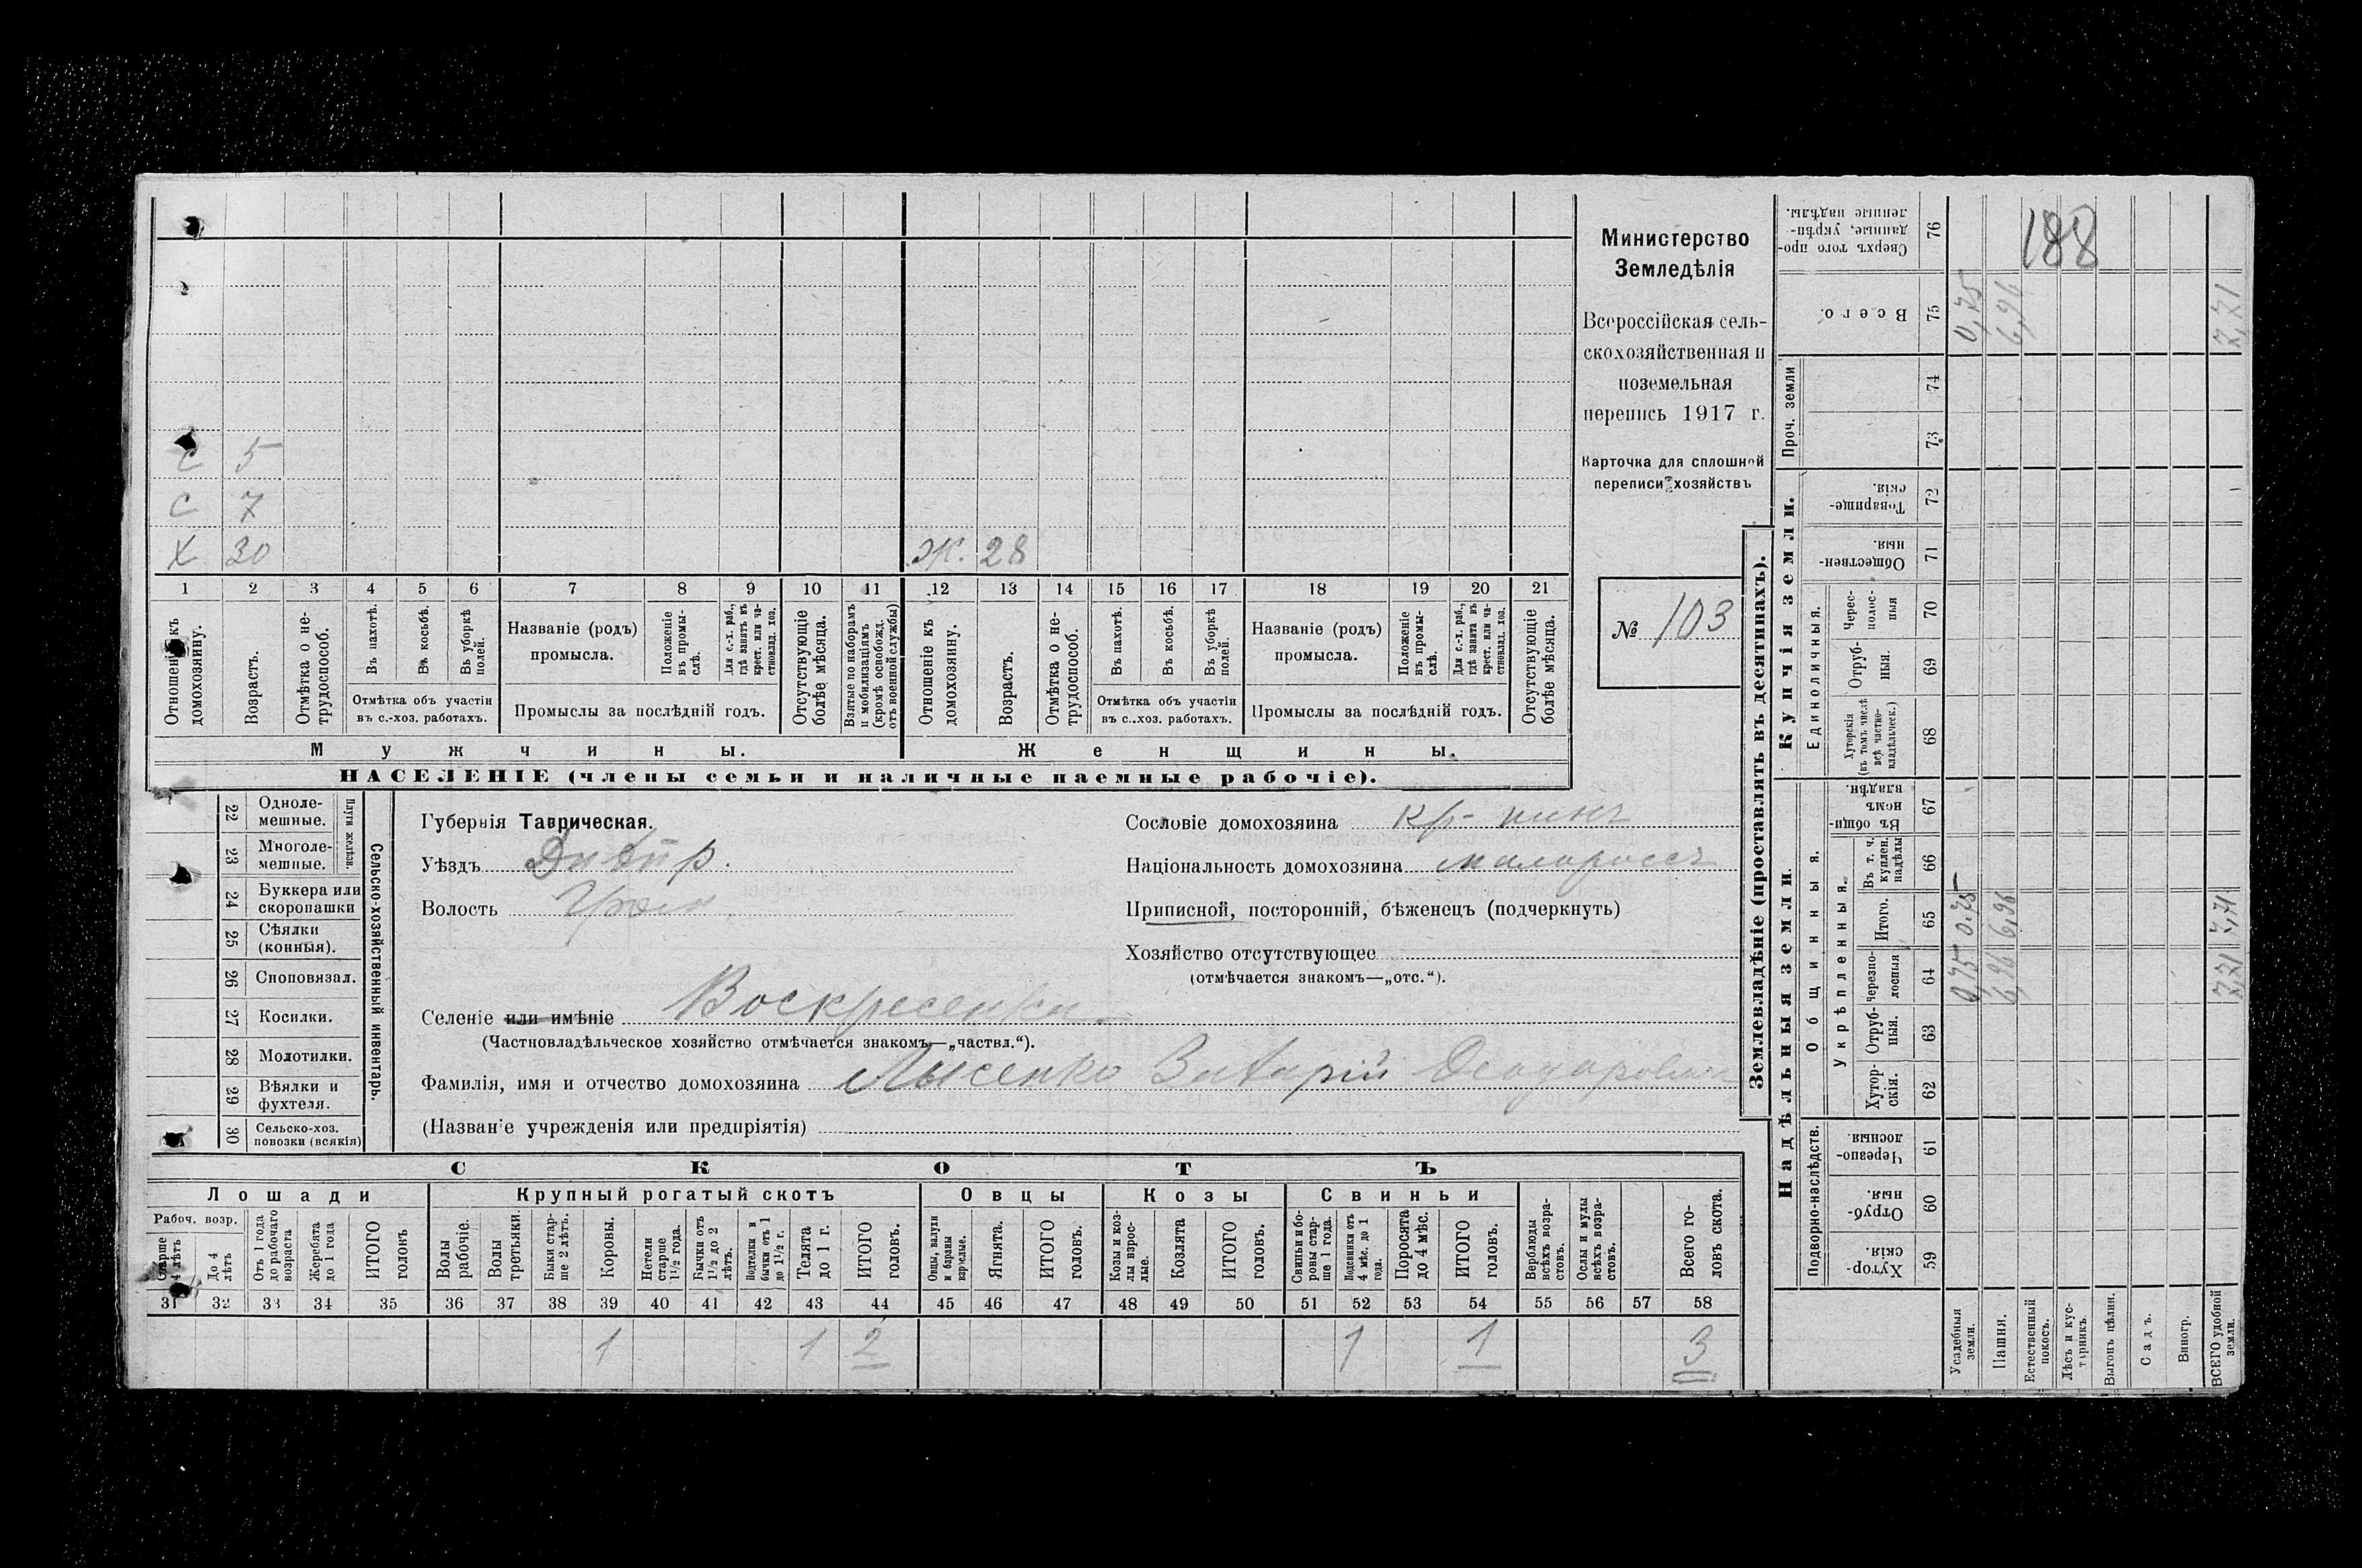 Министерство
Земледѣлія
Всероссійская сель-
скохозяйственная и
поземельная
перепись 1917 г.
Карточка для сплошной
переписи хозяйствъ
№ 103
188
С 5
С 7
Х 30 Ж. 28
1 2 3 4 5 6 7 8 9 10 11 12 13 14 15 16 17 18 19 20 21
Отношеніе къ домохозяину.
Возрастъ.
Отмѣтка о не-трудоспособ.
Въ пахотѣ.
Въ косьбѣ.
Въ уборкѣ полей.
Отмѣтка объ участіи
въ с.-хоз. работахъ.
Названіе (родъ)
промысла.
Положеніе въ промы-слѣ.
Для с.-х. раб., гдѣ занятъ въ крест. или ча-стновлад. хоз.
Промыслы за послѣдній годъ.
Отсутствующіе болѣе мѣсяца.
Взятые по наборамъ и мобилизаціямъ (кромѣ освобожд. отъ военной службы)
Отношеніе къ домохозяину.
Возрастъ.
Отмѣтка о не-трудоспособ.
Въ пахотѣ.
Въ косьбѣ.
Въ уборкѣ полей.
Отмѣтка объ участіи
въ с.-хоз. работахъ.
Названіе (родъ)
промысла.
Положеніе въ промы-слѣ.
Для с.-х. раб., гдѣ занята въ крест. или ча-стновлад. хоз.
Промыслы за послѣдній годъ.
Отсутствующіе болѣе мѣсяца.
Мужчины. Женщины.
НАСЕЛЕНІЕ (члены семьи и наличные наемные рабочіе).
22 Одноле-мешные.
23 Многоле-мешные.
Плуги желѣзн.
24 Буккера или скоропашки
25 Сѣялки (конныя).
26 Сноповязал.
27 Косилки.
28 Молотилки.
29 Вѣялки и фухтеля.
30 Сельско-хоз. повозки (всякія)
Сельско-хозяйственный инвентарь.
Губернія Таврическая.
Уѣздъ Днѣпр.
Волость
Селеніе или имѣніе Воскресенка
(Частновладѣльческое хозяйство отмѣчается знакомъ—„частвл.“).
Фамилія, имя и отчество домохозяина Лысенко
(Названіе учрежденія или предпріятія)
Сословіе домохозяина кр-нинъ
Національность домохозяина малороссъ
Приписной, посторонній, бѣженецъ (подчеркнуть)
Хозяйство отсутствующее
(отмѣчается знакомъ—„отс.“).
СКОТЪ
Лошади Крупный рогатый скотъ Овцы Козы Свиньи
Рабоч. возр.
Старше 4 лѣтъ
До 4 лѣтъ
Отъ 1 года до рабочаго возраста
Жеребята до 1 года
ИТОГО головъ
Волы рабочіе.
Волы третьяки.
Быки стар-ше 2 лѣтъ.
Коровы.
Нетели старше 1½ года.
Бычки отъ 1½ до 2 лѣтъ.
Подтелки и бычки отъ 1 до 1½ г.
Телята до 1 г.
ИТОГО головъ.
Овцы, валухи и бараны взрослые.
Ягнята.
ИТОГО головъ.
Козы и коз-лы взрос-лые.
Козлята
ИТОГО головъ.
Свиньи и бо-ровы стар-ше 1 года.
Подсвинки отъ 4 мѣс. до 1 года.
Поросята до 4 мѣс.
ИТОГО головъ.
Верблюды всѣхъ возра-стовъ.
Ослы и мулы всѣхъ возра-стовъ.
Всего го-ловъ скота.
31 32 33 34 35 36 37 38 39 40 41 42 43 44 45 46 47 48 49 50 51 52 53 54 55 56 57 58
1 1 2 1 1 3
Землевладѣніе (проставлять въ десятинахъ).
Надѣльныя земли.
Купчія земли.
Проч. земли
Подворно-наслѣдств.
Общинныя.
Укрѣпленныя.
Единоличныя.
Хутор-скія. 59
Отруб-ныя. 60
Черезпо-лосныя. 61
Хутор-скія. 62
Отруб-ныя. 63
Черезпо-лосныя 64
Итого. 65
Въ т. ч. куплен. надѣлы 66
Въ общин-номъ владѣн. 67
Хуторскія (въ томъ числѣ всѣ частно-владѣльческ.) 68
Отруб-ныя. 69
Черес-полос-ныя 70
Обществен-ныя. 71
Товарище-скія. 72
73 74
Всего. 75
Сверхъ того про-данные, укрѣп-ленные надѣлы. 76
Усадебныя земли. 0,75 0.75 0,75
Пашня. 6,96 6,96 6,96
Естественный покосъ.
Лѣсъ и кус-тарникъ.
Выгонъ цѣлин.
Садъ.
Виногр.
ВСЕГО удобной земли. 7,71 7,71 7,71